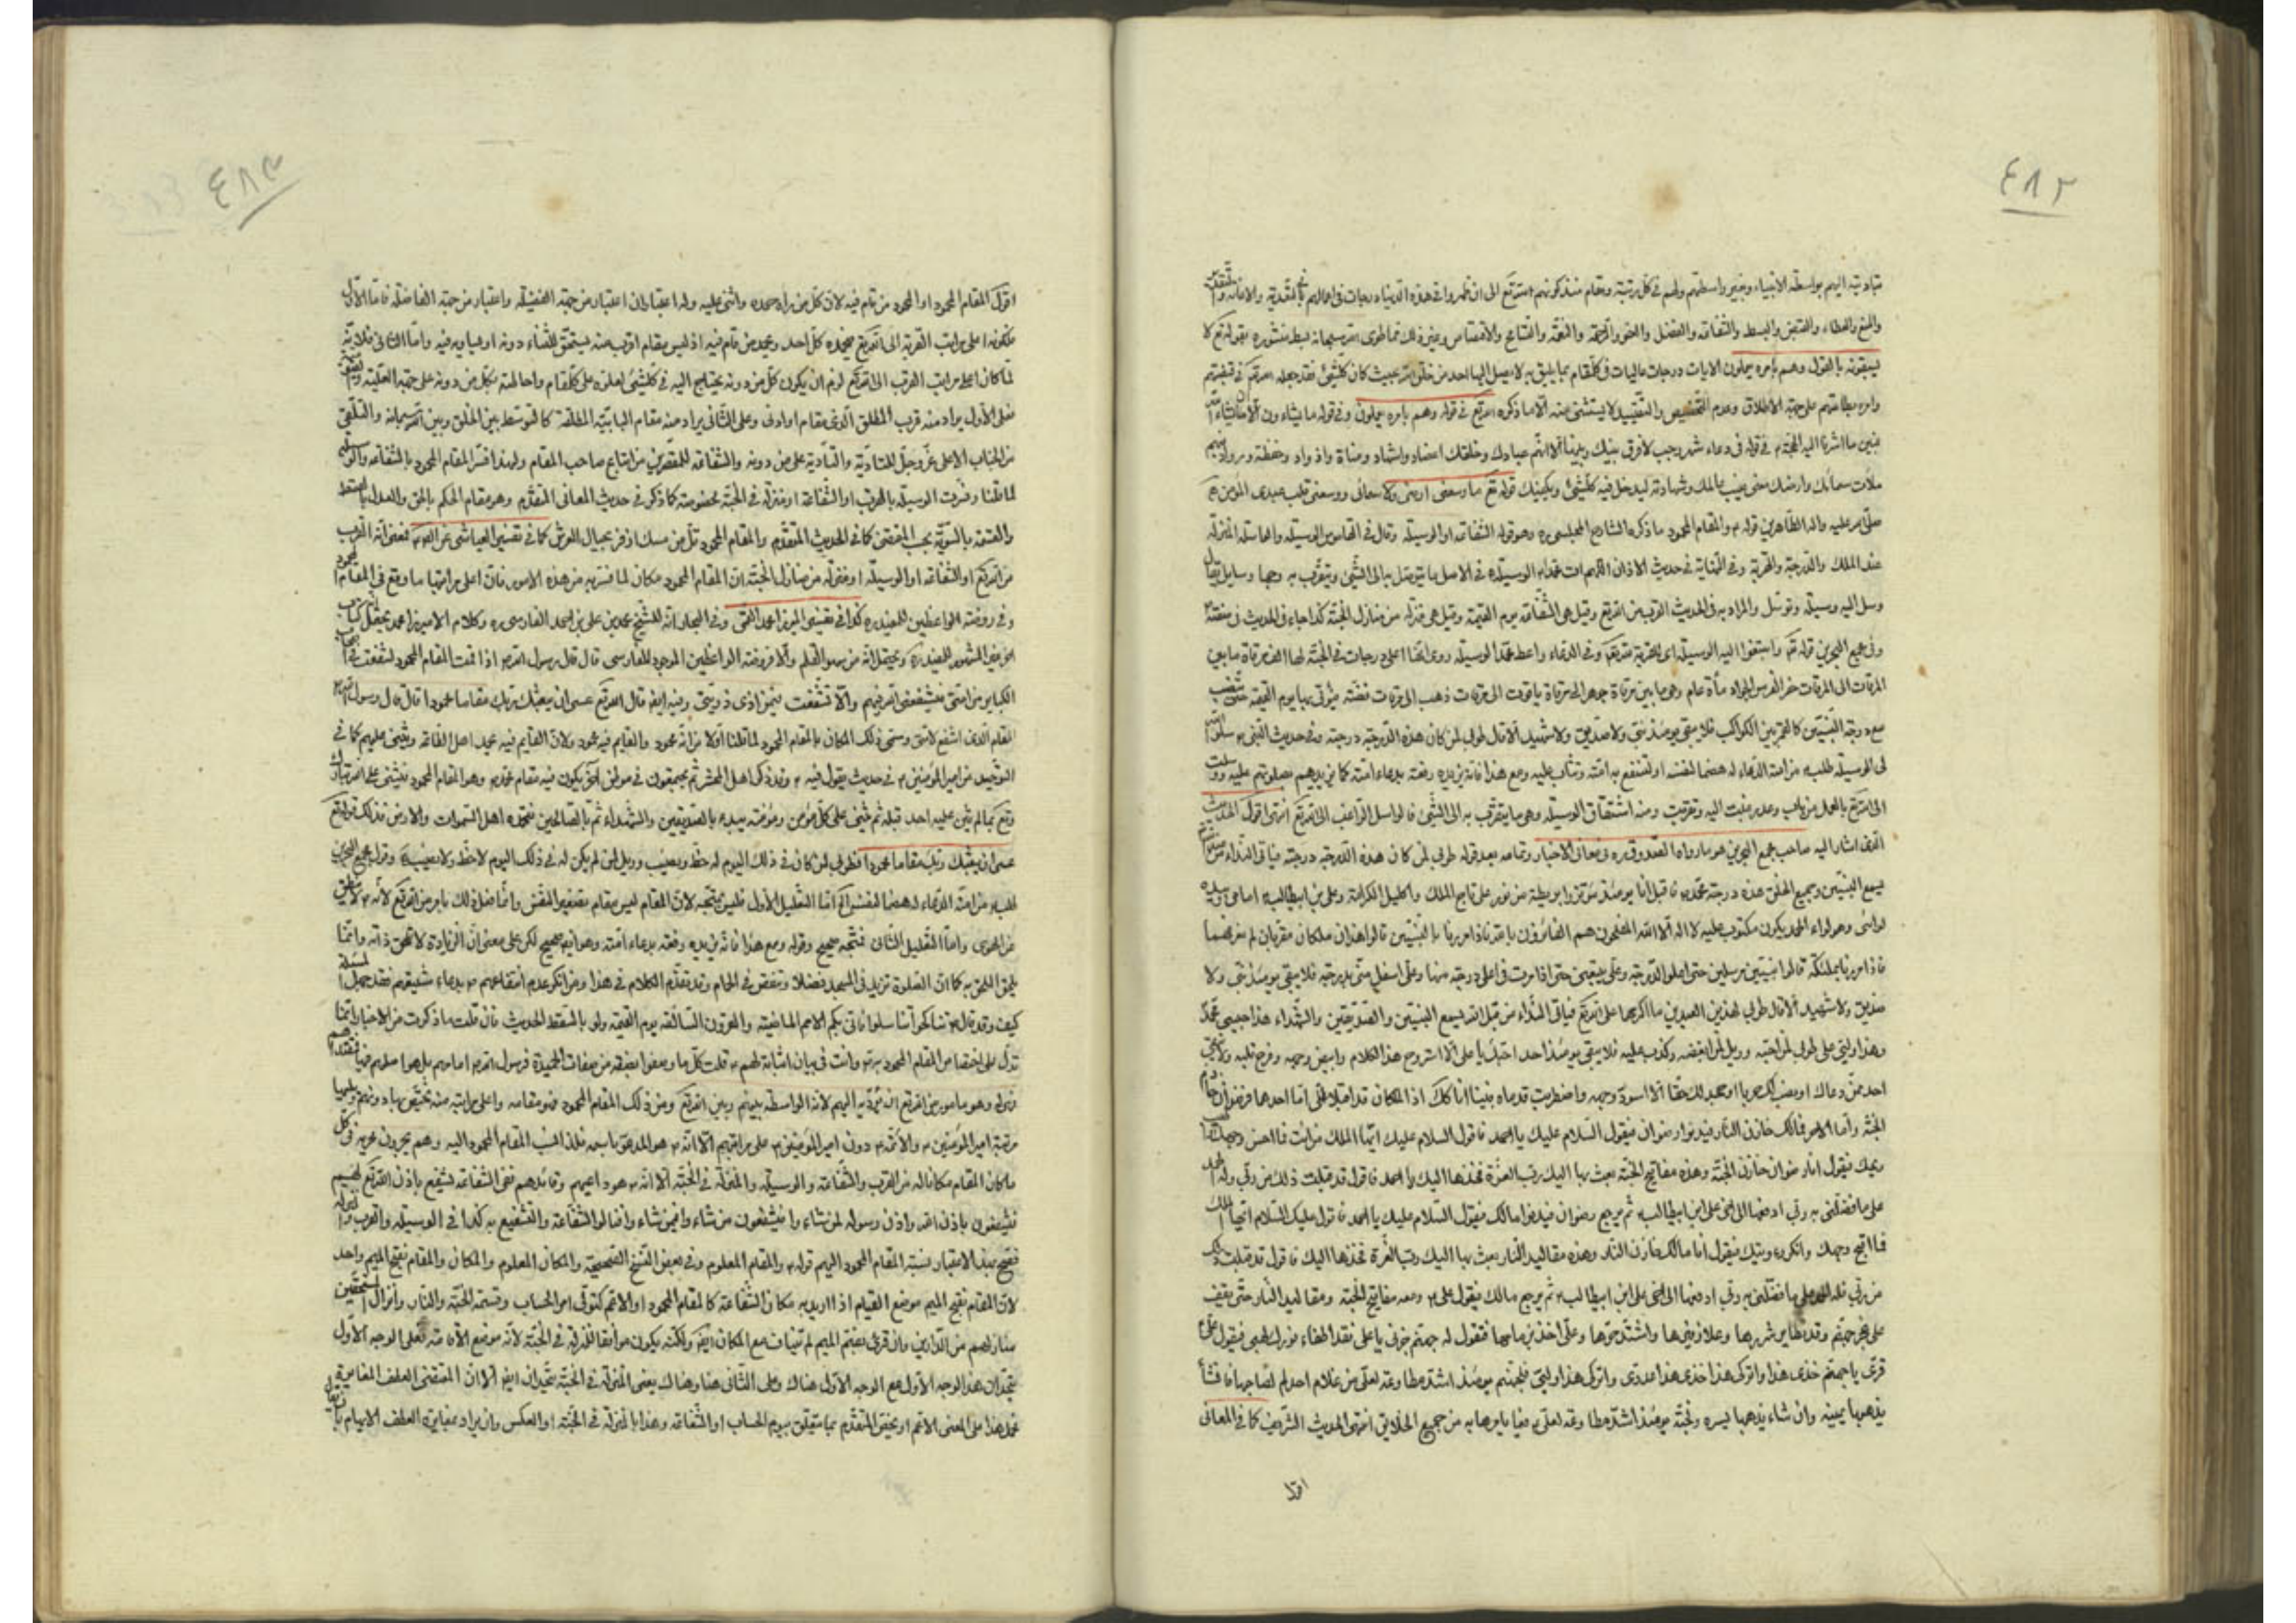 ٤٨٢
بتاديته اليهم بواسطة الانبياء وبغير واسطتهم ولهم في كل رتبة ومقام منذ كونهم الله تع الى ان ظهروا في هذه الدنيا درجات في اعمالهم
والمنع والعطاء والقبض والبسط والشفاعة والفضل والعفو والرحمة والنقمة والتسامح والاقتصاص وغير ذلك مما طوى الله سبحانه بسط منشوره بقوله تع لا
يسبقونه بالقول وهم بامره يعملون الايات درجات عاليات في كل مقام بما يليق به لا يصل اليها احد من خلق الله بحيث كان كل شيء فقد جعله الله تع في قبضتهم
وامره بطاعتهم على جهة الاطلاق وعدم التخصيص والتقييد لا يستثنى منه الا ما ذكره الله تع في قوله وهم بامره يعملون وفي قوله ما يشاءون الا ان يشاء الله
فبين ما اشرنا اليه الحجة ع في قوله في دعاء شهر رجب لا فرق بينك وبينها الا انهم عبادك وخلقك اعضاد واشهاد ومناة واذواد وحفظة ورواد فبهم
ملأت سمائك وارضك معنى غيب عالمك وشهادته ليدخل فيه كل شيء ويكفيك قوله تع ما وسعني ارضي ولا سمائي ووسعني قلب عبدي المؤمن
صلى الله عليه واله الطاهرين قوله ع والمقام المحمود ما ذكره الشارح المجلسي ره وهو قوله الشفاعة او الوسيلة وقال في القاموس الوسيلة والواسلة المنزلة
عند الملك والدرجة والقربة وفي النهاية في حديث الاذان اللهم ات محمدا الوسيلة هي في الاصل ما يتوصل به الى الشيء ويتقرب به وجمعها وسايل يقال
وسل اليه وسيلة وتوسل والمراد به في الحديث القرب من الله تع وقيل هي الشفاعة يوم القيمة وقيل هي منزلة من منازل الجنة كذا جاء في الحديث
وفي مجمع البحرين قوله تع وابتغوا اليه الوسيلة اي القربة وفي الدعاء واعط محمدا الوسيلة روي انها اعلى درجات في الجنة لها الف مرقاة ما بين
المرقاة الى المرقاة حضر الفرس الجواد مأة عام وهي ما بين مرقاة جوهر الى مرقاة ياقوت الى مرقات ذهب الى مرقات فضة فيؤتى بها يوم القيمة حتى تنصب
مع درجة النبيين كالقمر بين الكواكب فلا يبقى يومئذ نبي ولا صديق ولا شهيد الا قال طوبى لمن كان هذه الدرجة درجته وفي حديث النبي ص سلوا الله
لي الوسيلة طلبه ص من امته الدعاء له هضما لنفسه او لتنتفع به امته وتثاب عليه ومع هذا فانه يزيده رفعة بدعاء امته كما يزيدهم بصلوتهم عليه ووسلت
الى الله تع بالعمل من باب وعد رغبت اليه وتقربت ومنه اشتقاق الوسيلة وهي ما يتقرب به الى الشيء فالواسل الراغب الى الله تع انتهى اقول الحديث
الذي اشار اليه صاحب مجمع البحرين هو ما رواه الصدوق ره في معاني الاخبار وتمامه بعد قوله طوبى لمن كان هذه الدرجة درجته فياتي النداء
يسمع النبيين وجميع الخلق هذه درجة محمد ص فاقبل انا يومئذ متزرا بريطة من نور على تاج الملك واكليل الكرامة وعلي بن ابيطالب ع امامي وبيده
لوائي وهو لواء الحمد يكون مكتوب عليه لا اله الا الله المفلحون هم الفائزون بالله فاذا مررنا بالنبيين قالوا هذان ملكان مقربان لم نعرفهما
فاذا مررنا بالملئكة قالوا نبيين مرسلين حتى اعلو الدرجة وعلي يتبعني حتى اذا صرت في اعلى درجة منها وعلي اسفل مني بدرجة فلا يبقى يومئذ نبي ولا
صديق ولا شهيد الا قال طوبى لهذين العبدين ما اكرمهما على الله تع فياتي النداء من قبل الله يسمع النبيين والصديقين والشهداء هذا حبيبي محمد
وهذا وليي علي طوبى لمن احبه وويل لمن ابغضه وكذب عليه فلا يبقى يومئذ احد احبك يا علي الا استروح هذا الكلام وابيض وجهه وفرح قلبه ولا يبقى
احد ممن عاداك او نصب لك حربا او جحد لك حقا الا اسود وجهه واضطربت قدماه فبينا انا كك اذا ملكان قد اقبلا الي اما احدهما فرضوان خازن
الجنة واما الاخر فمالك خازن النار فيدنو رضوان فيقول السلام عليك يا احمد فاقول السلام عليك ايها الملك من انت فما احسن وجهك واطيب
ريحك فيقول انا رضوان خازن الجنة وهذه مفاتيح الجنة بعث بها اليك رب العزة فخذها اليك يا احمد فاقول قد قبلت ذلك من ربي وله الحمد
على ما فضلني به ربي ادفعها الى اخي علي ابن ابيطالب ع ثم يرجع رضوان فيدنو مالك فيقول السلام عليك يا احمد فاقول عليك السلام ايها الملك
فما اقبح وجهك وانكر رؤيتك فيقول انا مالك خازن النار وهذه مقاليد النار بعث بها اليك رب العزة فخذها اليك فاقول قد قبلت ذلك
من ربي فله الحمد على ما فضلني به ربي ادفعها الى اخي علي ابن ابيطالب ع ثم يرجع مالك فيقول علي ع ومعه مفاتيح الجنة ومقاليد النار حتى يقف
على عجز جهنم وقد تطاير شررها وعلا زفيرها واشتد حرها وعلي اخذ بزمامها فتقول له جهنم جزني يا علي فقد اطفاء نورك لهبي فيقول علي
قري يا جهنم خذي هذا واتركي هذا خذي هذا عدوي واتركي هذا وليي فلجهنم يومئذ اشد مطاوعة لعلي من غلام احدكم لصاحبه فان شاء
يذهبها يمينه وان شاء يذهبها يسره ولجهنم يومئذ اشد مطاوعة لعلي ع فيما يامرها به من جميع الخلائق انتهى الحديث الشريف كما في المعاني
اقول
٤٨٣
اقول المقام المحمود او المحمود من قام فيه لان كل من راه حمده واثنى عليه وله اعتباران اعتبار من جهة الفضيلة واعتبار من جهة الفاضلة فاما الاول
فلكونه اعلى مراتب القربة الى الله تع فيحمده كل احد ويحمد من قام فيه اذ ليس مقام اقرب منه يستحق الثناء دونه او يساويه فيه واما الثاني فلانه
لما كان اعلى مراتب القرب الى الله تع لزم ان يكون كل من دونه يحتاج اليه في كل شيء لعلوه على كل مقام واحاطته بكل من دونه على جهة العلية
فعلى الاول يراد منه قرب المطلق الذي مقام او ادنى وعلى الثاني يراد منه مقام البابية المطلقة كالتوسط بين الخلق وبين الله سبحانه والتلقي
من الجناب الاعلى عز وجل للتادية والتادية على من دونه والشفاعة للمقصرين من اتباع صاحب المقام ولهذا فسر المقام المحمود بالشفاعة والوسيلة
لما قلنا وفسرت الوسيلة بالقرب او الشفاعة او منزلة في الجنة مخصوصة كما ذكر في حديث المعاني المتقدم وهو مقام الحكم بالحق والعدل بالقسط
والقسمة بالسوية بحسب المقتضى كما في الحديث المتقدم والمقام المحمود تل من مسك اذفر بحيال العرش كما في تفسير العياشي عن فمعنى انه القرب
من الله تع او الشفاعة او الوسيلة او منزلة من منازل الجنة ان المقام المحمود مكان لما فسر به من هذه الامور فان اعلى مراتبها ما وقع في المقام المحمود
وفي روضة الواعظين للمفيد ره كذا في تفسير الميرزا محمد القمي وفي البحار انه للشيخ محمد بن علي بن احمد الفارسي ره وكلام الاميرزا محمد يحتمل
غير المشهور للمفيد ره ويحتمل انه من سهو القلم والا فروضة الواعظين الموجود للفارسي قال قال رسول الله ص اذا قمت المقام المحمود تشفعت في اصحاب
الكباير من امتي فيشفعني الله فيهم والله لا تشفعت فيمن اذى ذريتي وفيه ايضا قال الله تع عسى ان يبعثك ربك مقاما محمودا قال قال رسول الله ص
المقام الذي اشفع لامتي وسمي ذلك المكان بالمقام المحمود لما قلنا اولا من انه محمود والقايم فيه محمود ولان القايم فيه يحمد اهل الطاعة ويثني عليهم كما في
التوحيد عن امير المؤمنين ع في حديث يقول فيه ع وقد ذكر اهل المحشر ثم يجتمعون في موطن اخر يكون فيه مقام محمد ص وهو المقام المحمود فيثني على الله تبارك
وتع بما لم يثن عليه احد قبله ثم يثني على كل مؤمن ومؤمنة يبدء بالصديقين والشهداء ثم بالصالحين فيحمده اهل السموات والارض فذلك قوله تع
عسى ان يبعثك ربك مقاما محمودا فطوبى لمن كان في ذلك اليوم له حظ ونصيب وويل لمن لم يكن له في ذلك اليوم لا حظ ولا نصيب وقول مجمع البحرين
طلبه ص من امته الدعاء له هضما لنفسه اما التعليل الاول فليس بمتجه لان المقام ليس مقام يقتضي هضم النفس وانما فعل ذلك بامر من الله تع لانه ص لا ينطق
عن الهوى واما التعليل الثاني فمتجه صحيح وقوله ومع هذا فانه يزيده رفعة بدعاء امته وهو ايضا صحيح لكن على معنى ان الزيادة لا تلحق ذاته وانما
يلحق به كما ان الصلوة تزيد في المسجد فضلا وتنقص في الحمام وقد تقدم الكلام في هذا ومن انكر عدم انتفاعهم ص بدعاء شيعتهم فقد جهل المسئلة
كيف وقد قال ص تناكحوا تناسلوا فاني اباهي بكم الامم الماضية والقرون السالفة يوم القيمة ولو بالسقط الحديث فان قلت ما ذكرت من الاخبار انما
تدل على اختصاص المقام المحمود به ص وانت في بيان اثباته لهم ع قلت كل ما وصفوا بصفة من صفات الحميدة فرسول الله ص امامهم
فيه وهو مامور من الله تع ان يؤديه اليهم لانه الواسطة بينهم وبين الله تع ومن ذلك المقام المحمود فهو مقامه واعلى مراتبه منه تختص به دونهم
مرتبة امير المؤمنين ع والائمة ع دون امير المؤمنين ع على مراتبهم الا انه ص هو المدعو باسمه فلذا نسب المقام المحمود اليه وهم يجرون مجريه في كل
ما كان المقام مكانا له من القرب والشفاعة والوسيلة والمنزلة في الجنة الا انه ص هو داعيهم وقائدهم ففي الشفاعة يشفع باذن الله تع لهم
فيشفعون باذن الله واذن رسوله لمن شاء وا فيشفعون من شاء وا فيمن شاء وا فنالوا الشفاعة والتشفيع به كذا في الوسيلة والقرب والمنزلة
فصح بهذا الاعتبار نسبة المقام المحمود اليهم قوله ع والمقام المعلوم وفي بعض النسخ الصحيحة والمكان المعلوم والمكان والمقام بفتح الميم واحد
لان المقام بفتح الميم موضع القيام اذا اريد به مكان الشفاعة كالمقام المحمود او الاتم كتولي امر الحساب وقسمة الجنة والنار وانزال المستحقين
منازلهم من الدارين وان قرئ بضم الميم لم يتناف مع المكان ايضا ولكنه يكون موافقا للمنزلة في الجنة لانه موضع الاقامة فعلى الوجه الاول
يتحدان هذا الوجه الاول مع الوجه الاول هناك وعلى الثاني هنا وهناك بمعنى المنزلة في الجنة يتحدان ايضا الا ان المقتضى العطف المغايرة
فحمل هذا على المعنى الاتم او يختص المتقدم بما يتعلق بيوم الحساب او الشفاعة وهذا بالمنزلة في الجنة او العكس وان يراد بمغايرة العطف الابهام